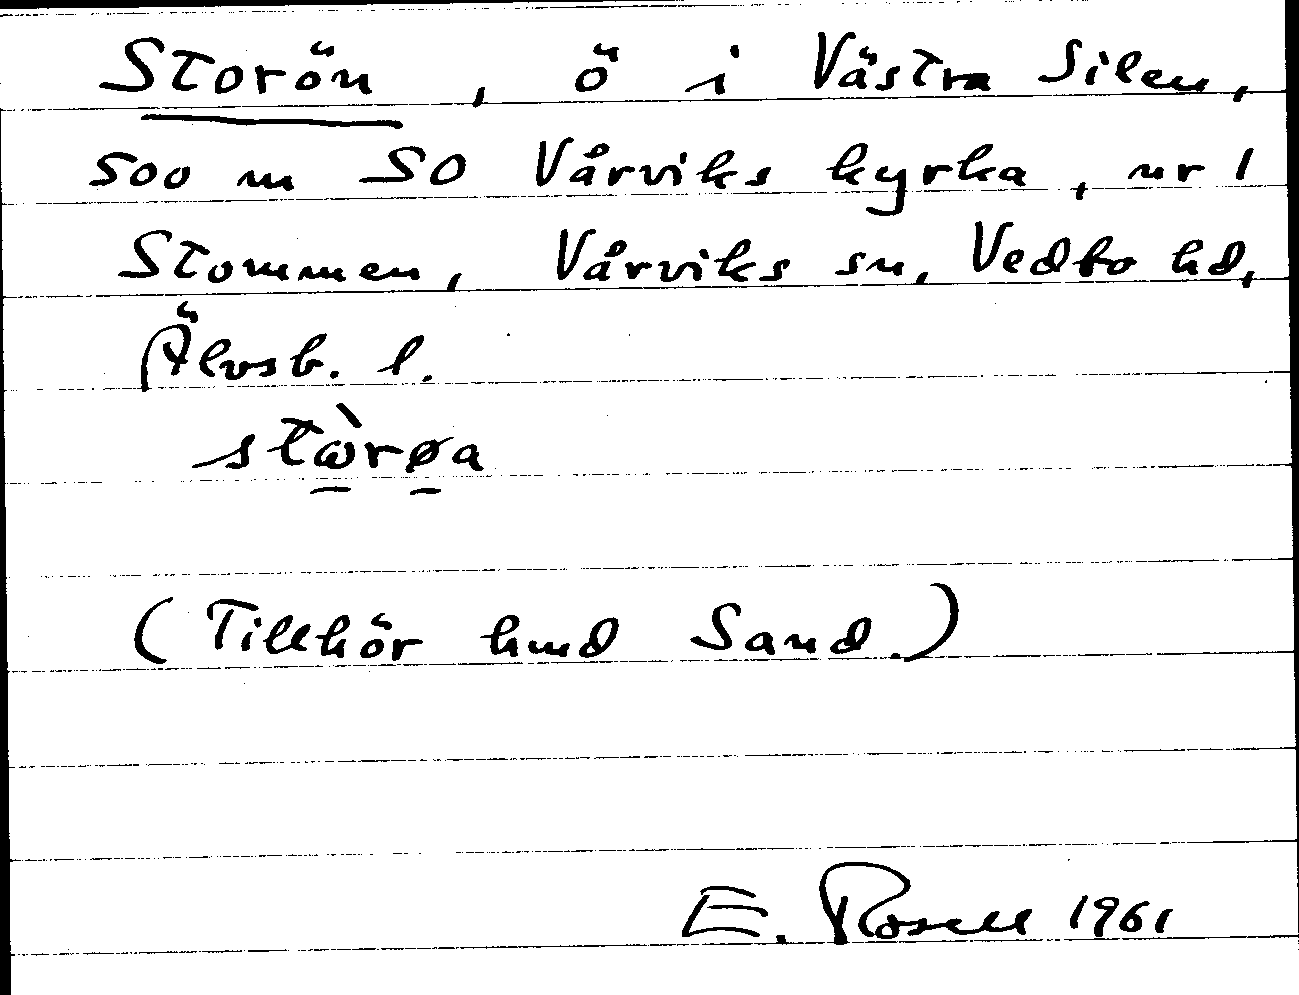 Storön, ö i Västra Silen,
500 m SO Vårviks kyrka, nr 1
Stommen, Vårviks sn, Vedbo hd,
Älvsb. l.
stὼ̱rø̱a
(Tillhör hmd Sand.)
E. Rosell 1961